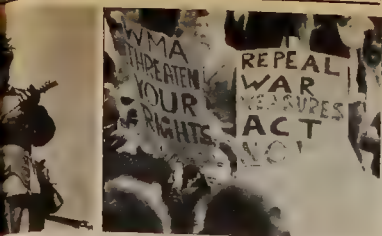 WMA
THREATEN
YOUR
RIGHTS
REPEAL
WAR
MEASURES
ACT
NOW